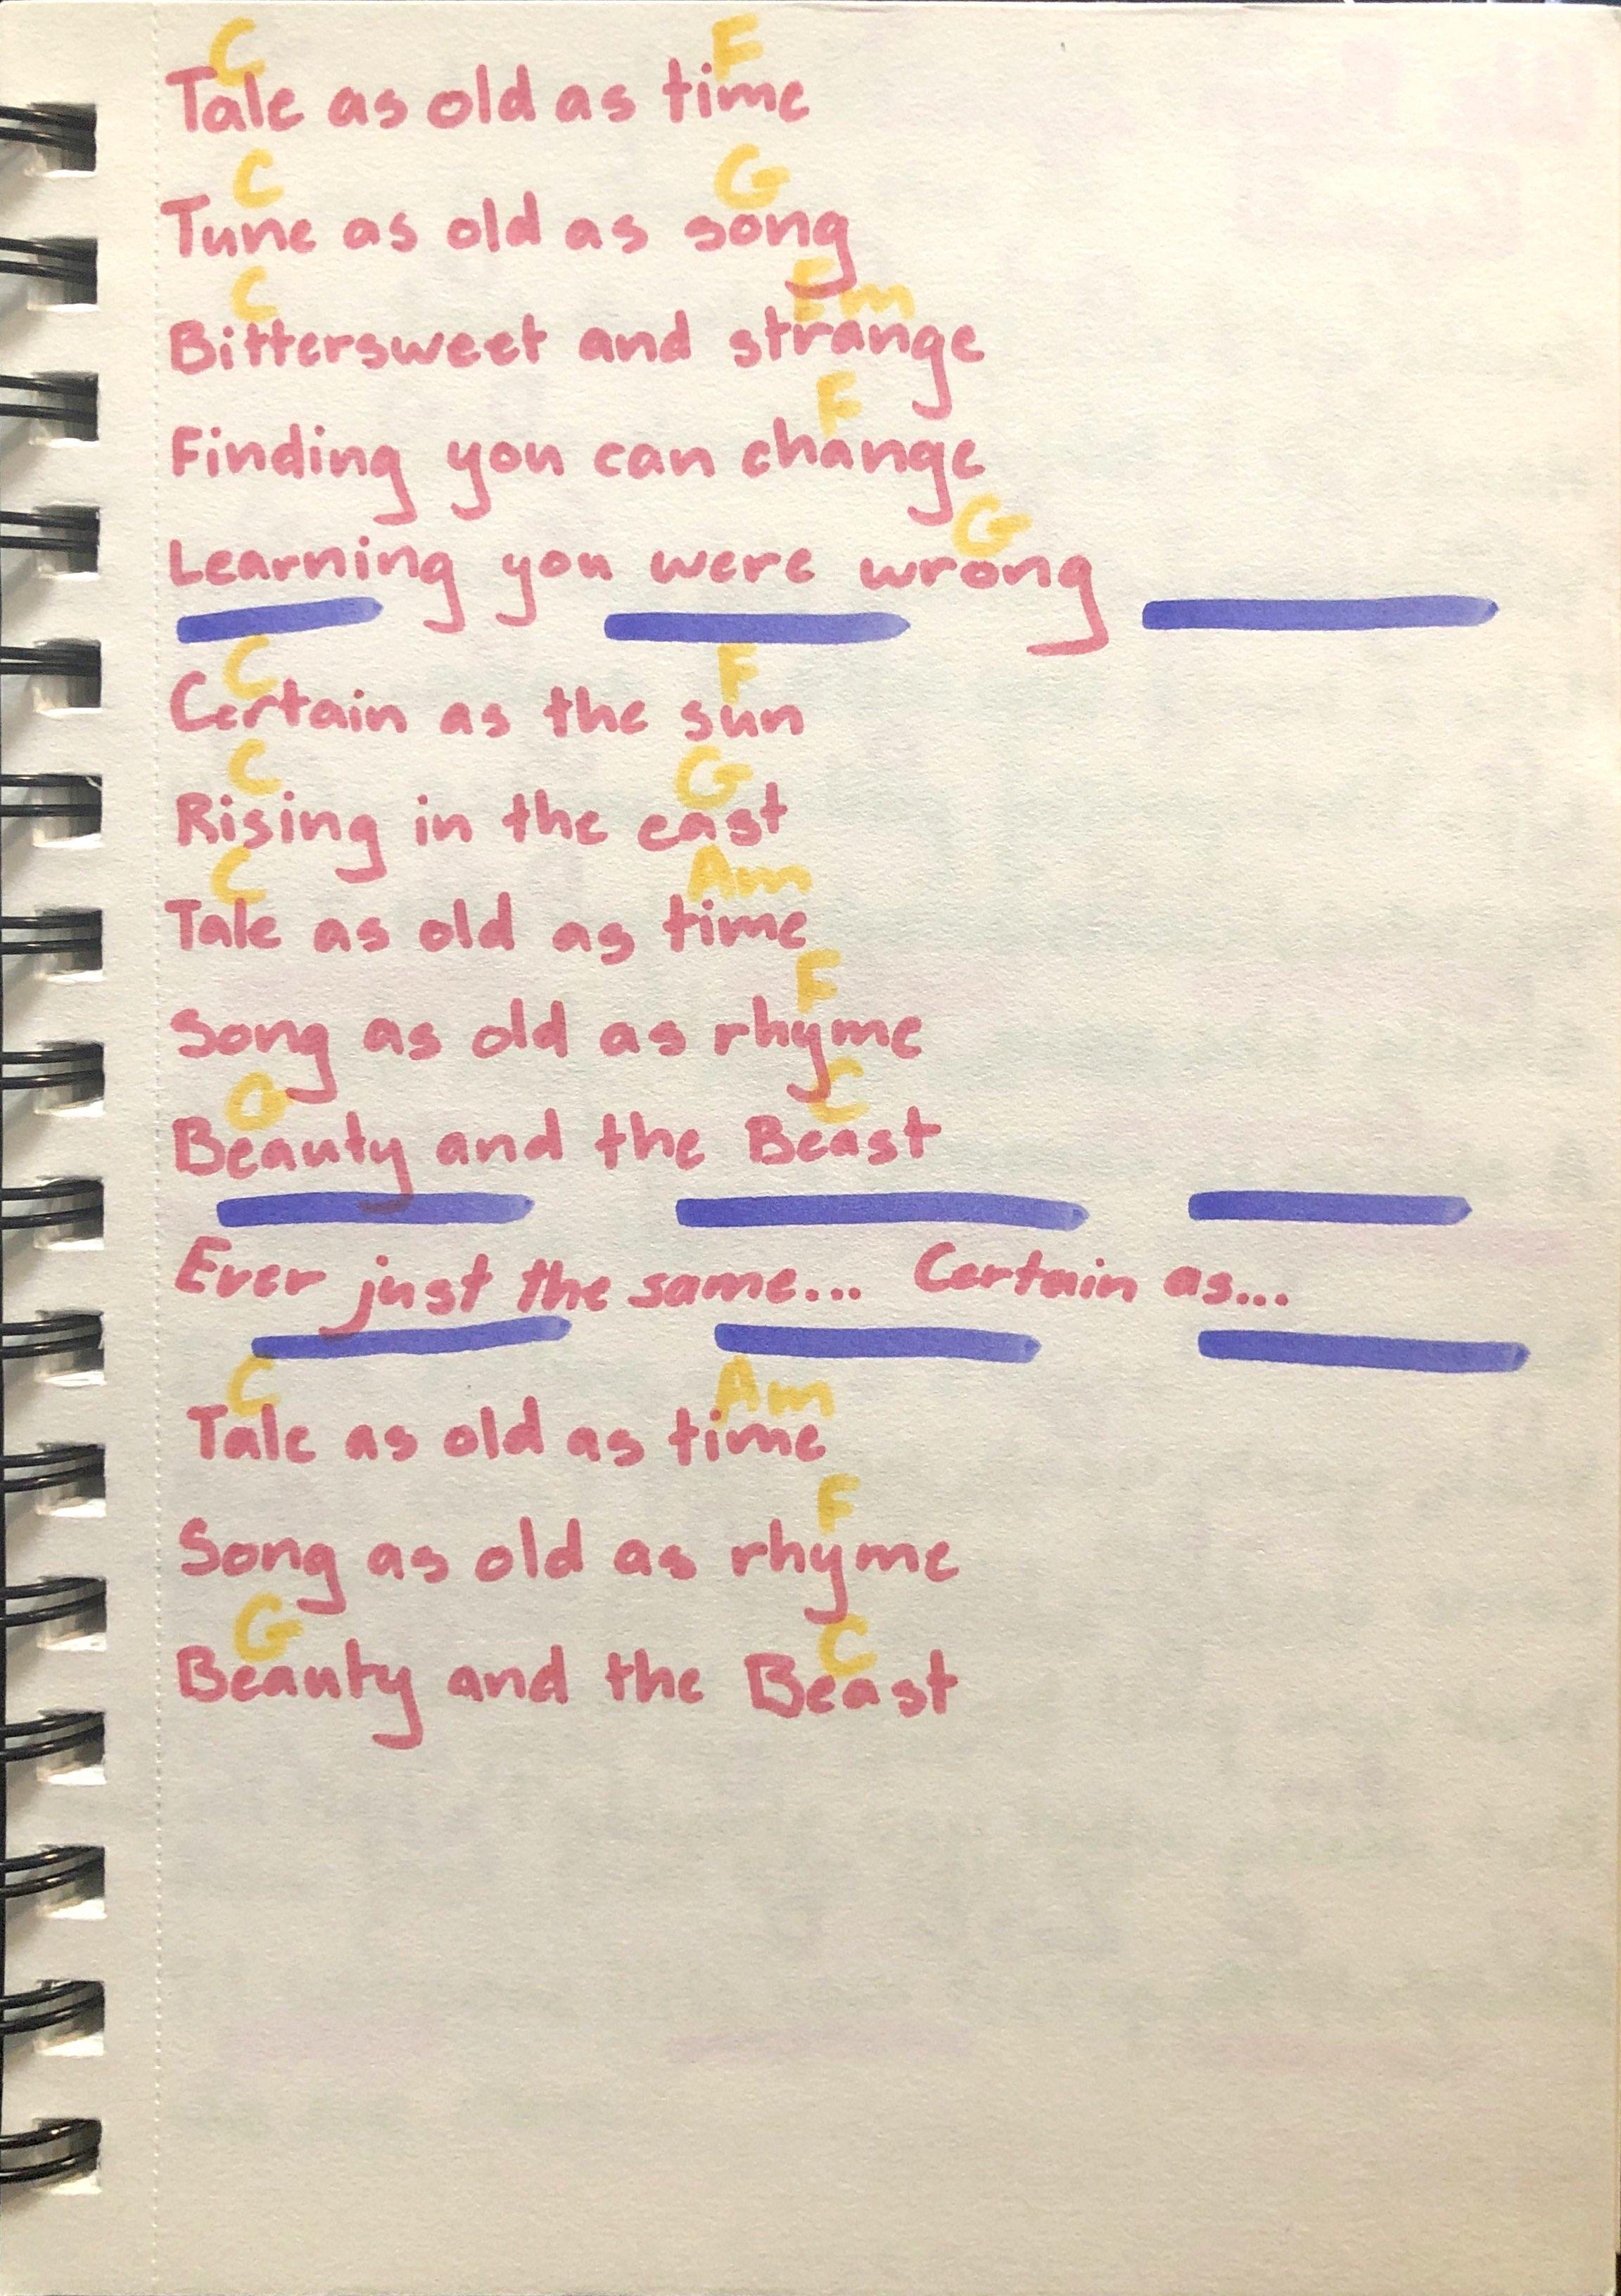 C F
Tale as old as time
C G
Tune as old as song
C Em
Bittersweet and strange
F
Finding you can change
G
Learning you were wrong
C F
Certain as the sun
C G
Rising in the east
C Am
Tale as old as time
F
Song as old as rhyme
G C
Beauty and the Beast
Ever just the same... Certain as...
C Am
Tale as old as time
F
Song as old as rhyme
G C
Beauty and the Beast